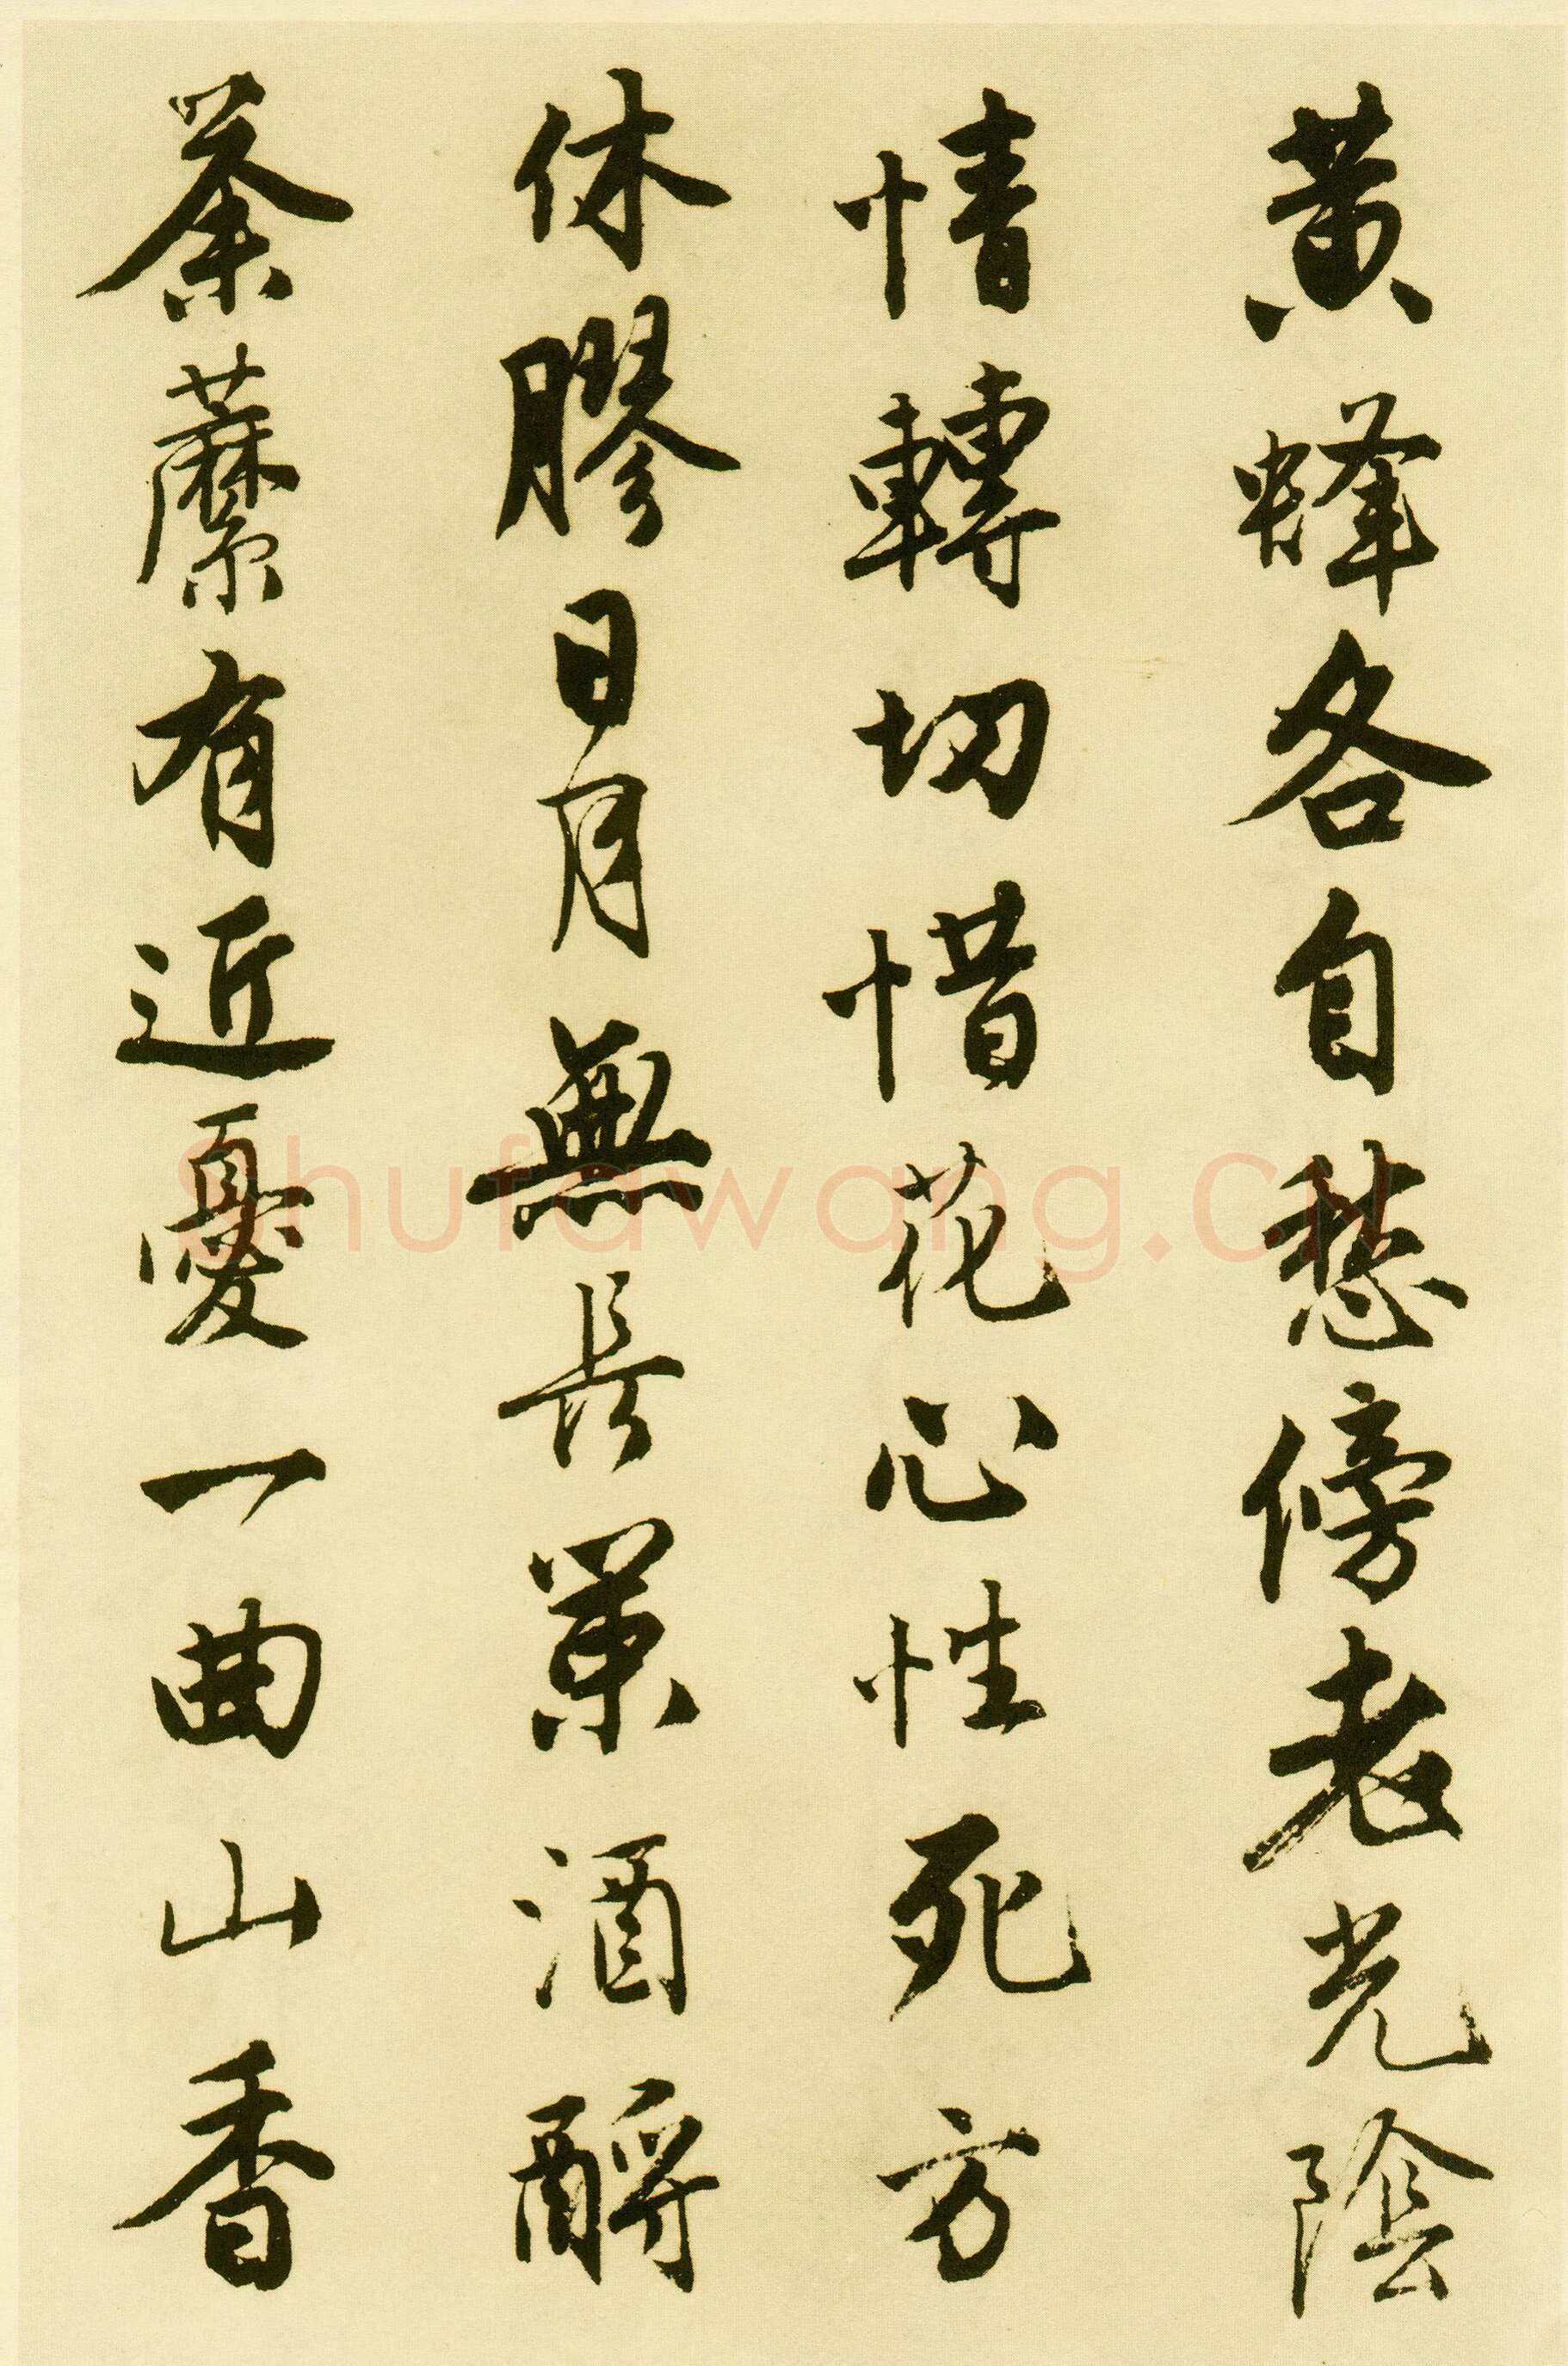 黄蜂各自愁傍老光陰
情轉切惜花心性死方
休膠日月無長策酒酹
荼䕷有近憂一曲山香
Shufawang.cn